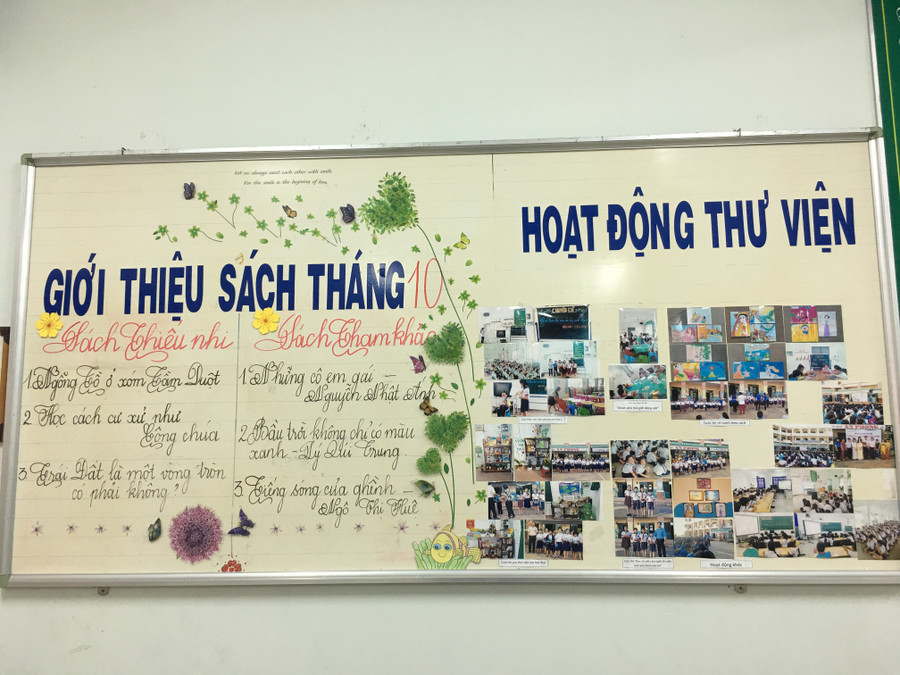 Let us always meet each other with smile
For the smile is the begining of love.
GIỚI THIỆU SÁCH THÁNG 10
Sách Thiếu nhi
1. Ngỗng Cồ ở xóm Cầm Quýt
2. Học cách cư xử như
Công chúa
3. Trái Đất là một vòng tròn
có phải không?
Sách Tham khảo
1. Những cô em gái -
Nguyễn Nhật Ánh
2. Bầu trời không chỉ có màu
xanh - Lý Lùi Trung
3. Tiếng song của ghình -
Ngô Thi Huê
HOẠT ĐỘNG THƯ VIỆN
Hoạt động khác